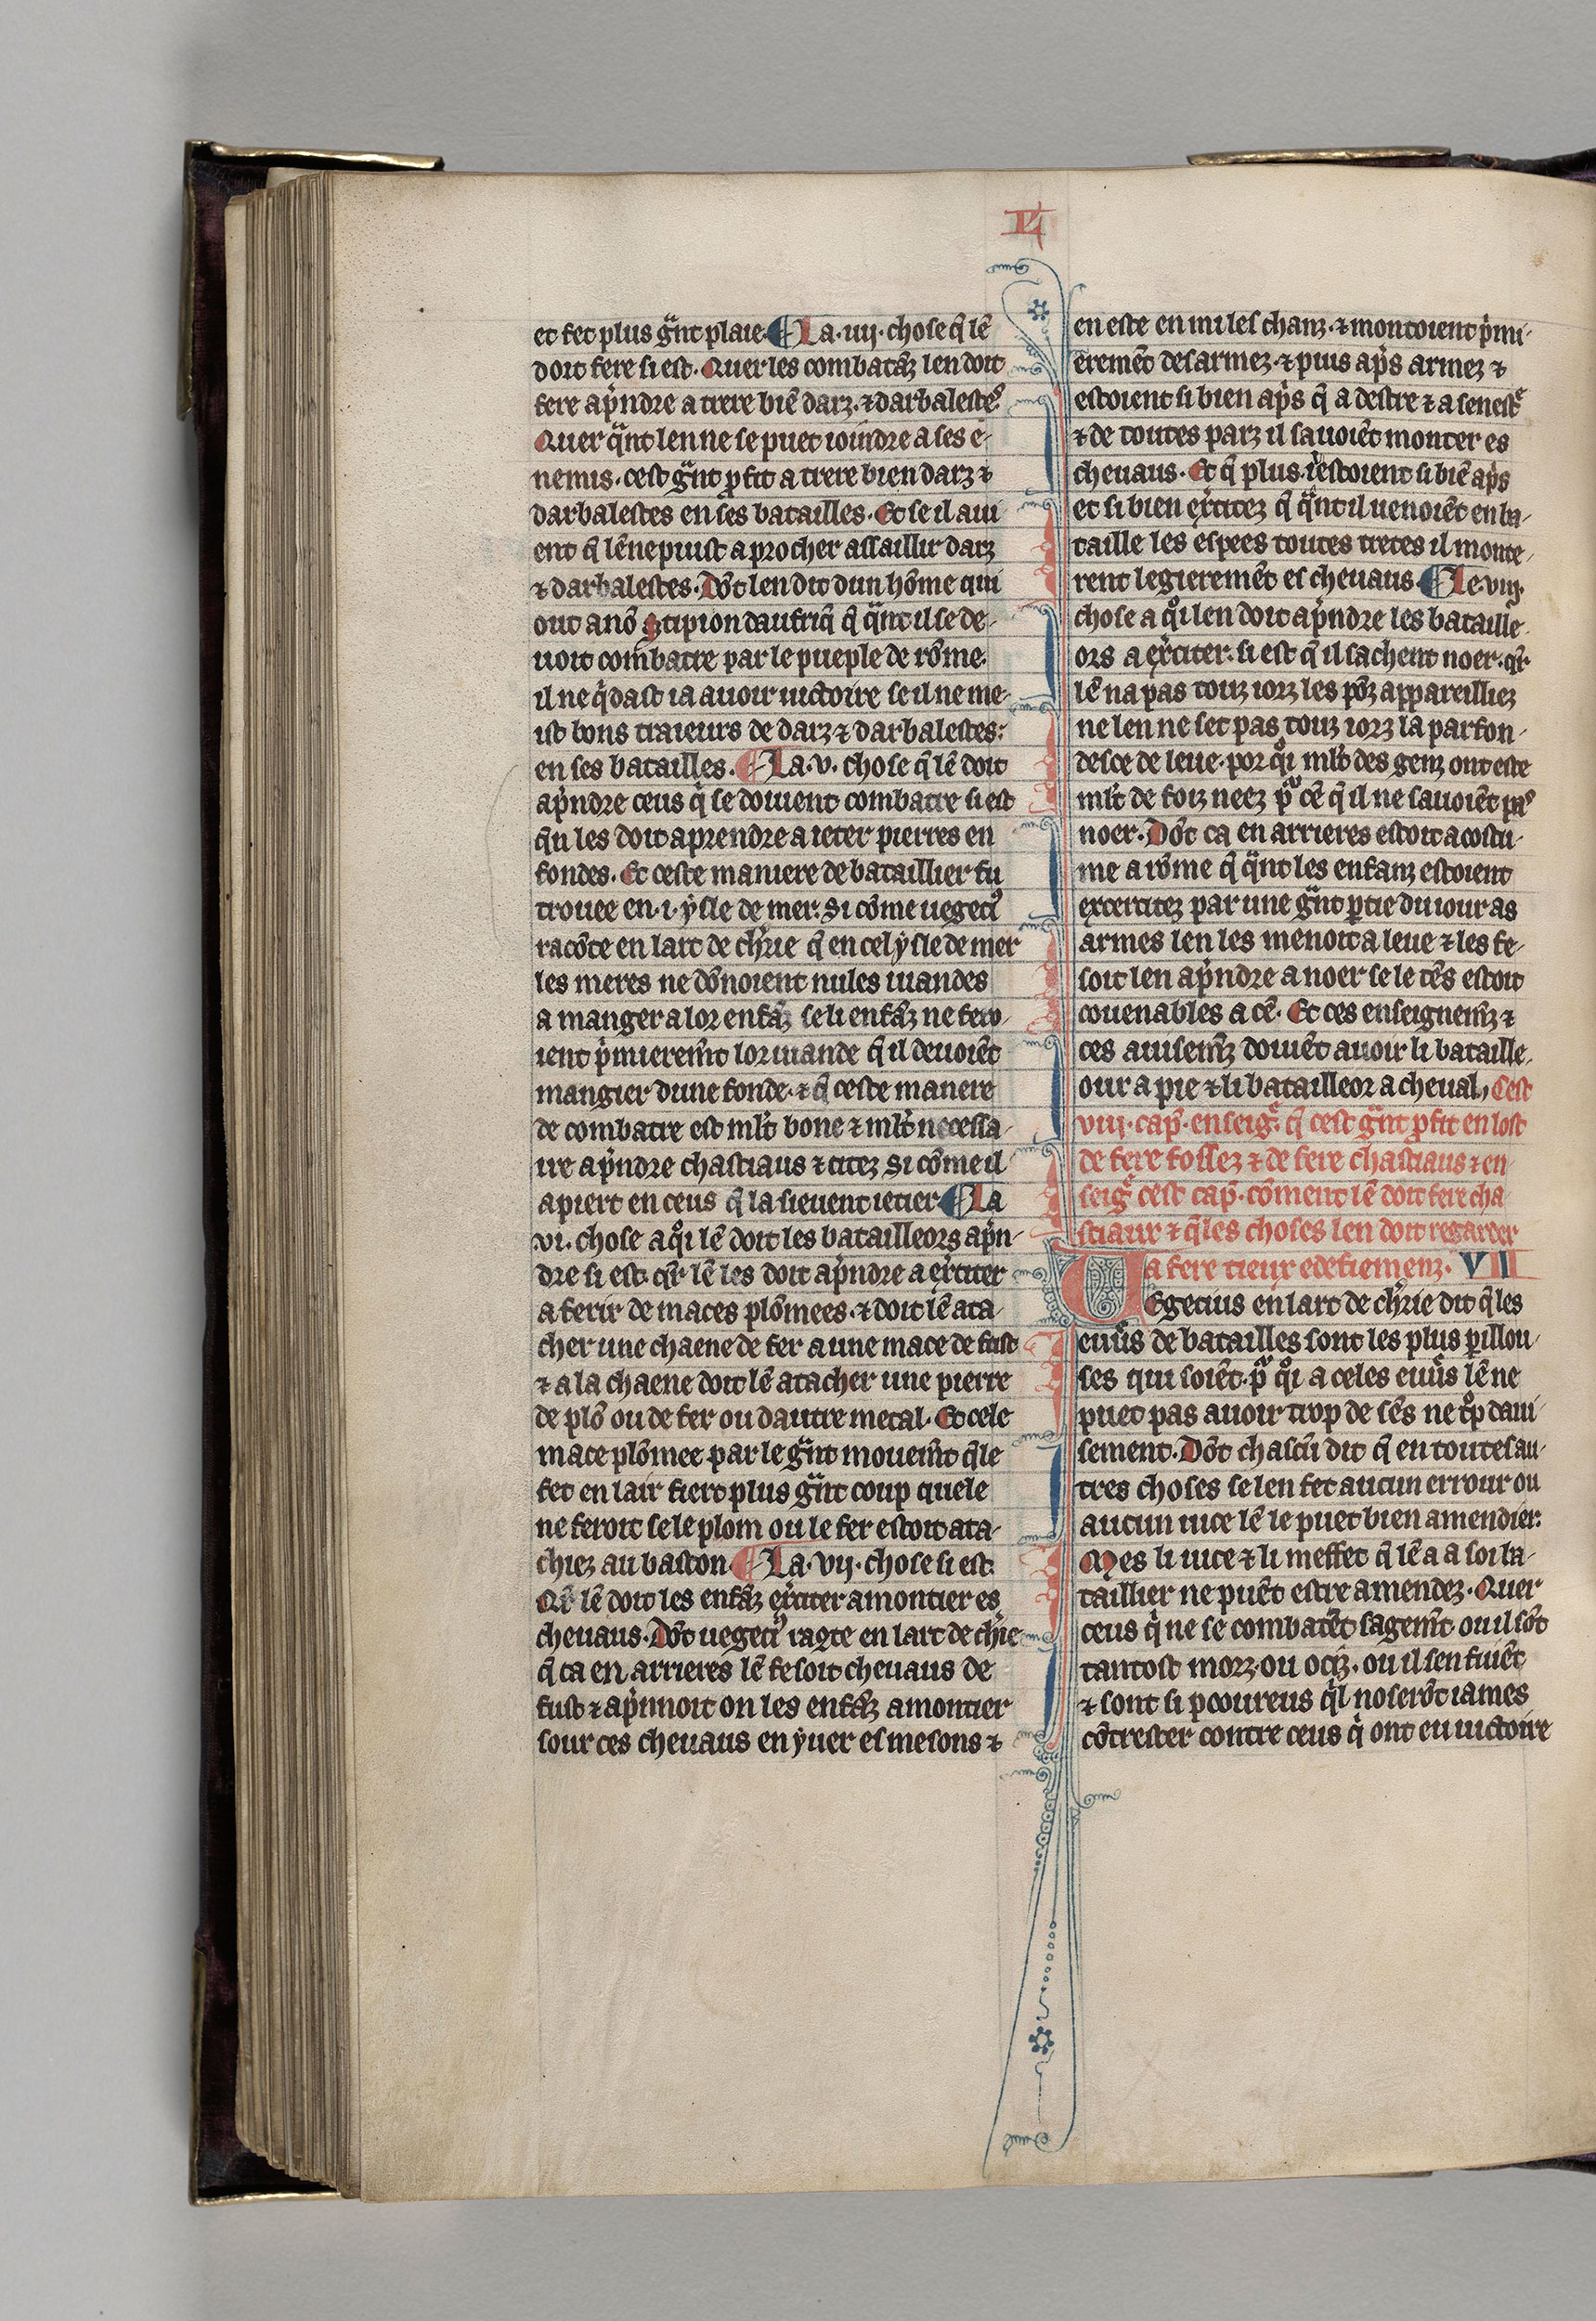 L
et fet plus gñt plaie. ¶ La .iiij. chose q̃ lẽ
doit fere si est. Quer les combatãz len doit
fere ap̃ndre a trere biẽ darz. ⁊ darbalestes.
Quer qñt len ne se puet ioindre a ses e-
nemis. cest gñt ꝓfit a trere bien darz ⁊
darbalestes en ses batailles. Et se il aui
ent q̃ lẽ ne puist aprocher assaillir darz
⁊ darbalestes. Dõt len dit dun hõme qui
out a nõ scipion daufriq̃ q̃ qñt il se de-
uoit combatre par le pueple de rõme.
il ne q̃dast ia auoir uictoire se il ne me-
ist bons traieurs de darz ⁊ darbalestes:
en ses batailles. ¶ La .v. chose q̃ lẽ doit
ap̃ndre ceus q̃ se doiuent combatre si est
qu les doit aprendre a ieter pierres en
fondes. Et ceste maniere de bataillier fu
trouee en .i. ysle de mer. Si cõme uegeciꝰ
racõte en lart de ch̃rie q̃ en cel ysle de mer
les meres ne dõnoient nules uiandes
a manger a lor enfãz se li enfãz ne fero-
ient p̃mierem̃t lor uiande q̃ il deuoiẽt
mangier dune fonde. ⁊ q̃ ceste manere
de combatre est ml̃t bone ⁊ ml̃t necessa-
ire a p̃ndre chastiaus ⁊ citez si cõme il
apiert en ceus q̃ la sieuent ietier ¶ La
.vi. chose a qͦi lẽ doit les batailleors ap̃n-
dre si est. qr̃ lẽ les doit ap̃ndre a ex̃citer
a ferir de maces plõmees. ⁊ doit lẽ ata-
cher une chaene de fer a une mace de fust
⁊ a la chaene doit lẽ atacher une pierre
de plõ ou de fer ou dautre metal. Et cele
mace plõmee par le gñt mouem̃t q̃le
fet en lair fiert plus gñt coup quele
ne feroit se le plom ou le fer estoit ata-
chiez au baston. ¶ La .vij. chose si est.
Qr̃ lẽ doit les enfãz ex̃citer a montier es
cheuaus. Dõt uegeciꝰ racõte en lart de ch̃ie
q̃ ca en arrieres lẽ fesoit cheuaus de
fust ⁊ ap̃nnoit on les enfãz a montier
sour ces cheuaus en yuer es mesons ⁊
en este en mi les chanz. ⁊ montoient p̃mi-
eremẽt desarmez. ⁊ puis ap̃s armez ⁊
estoient si bien ap̃s q̃ a destre ⁊ a senestr̃
⁊ de toutes parz il sauoiẽt monter es
cheuaus. Et q̃ plus. iestoient si biẽ ap̃s
et si bien ex̃citez q̃ qñt il uenoiẽt en ba-
taille les espees toutes tretes il monte-
rent legieremẽt es cheuaus ¶ Le .viij.
chose a qͦi len doit ap̃ndre les bataille-
ors a ex̃citer. si est q̃ il sachent noer. qr̃
lẽ na pas touz iorz les põz appareilliez
ne len ne set pas touz iorz la parfon-
desce de leue. por qͦi ml̃t des genz ont este
ml̃t de foiz neez pͬ cẽ q̃ il ne sauoiẽt pas
noer. Dõt ca en arrieres estoit acostu-
me a rõme q̃ qñt les enfanz estoient
excercitez par une gñt ꝑtie du iour as
armes len les menoit a leue ⁊ les fe-
soit len ap̃ndre a noer se le tẽs estoit
couenables a cẽ. Et ces enseignem̃z ⁊
ces auisem̃z doiuẽt auoir li bataille-
our a pie ⁊ li batailleor a cheual, Cest
viij. cap̃. enseig̃. q̃ cest gñt ꝓfit en lost
de fere fossez ⁊ de fere chastiaus ⁊ en-
seig̃ cest cap̃. cõment lẽ doit fere cha-
stiaux ⁊ q̃les choses len doit regarder
a fere tieux edefiemenz. VIII
Vegetius en lart de ch̃rie dit q̃ les
euũs de batailles sont les plus ꝑillou-
ses qui soiẽt. pͬ qͦi a celes euũs lẽ ne
puet pas auoir trop de sẽs ne tͦp daui-
sement. Dõt chascũ dit q̃ en toutes au-
tres choses se len fet aucun errour ou
aucun uice lẽ le puet bien amendier:
Mes li uice ⁊ li meffet q̃ lẽ a a soi ba-
taillier ne puẽt estre amendez. Quer
ceus q̃ ne se combatẽt sagem̃t ou il sõt
tantost morz. ou ocis. ou il sen fuiẽt
⁊ sont si poureus q̃l noserõt iames
cõtrester contre ceus q̃ ont eu uictoire